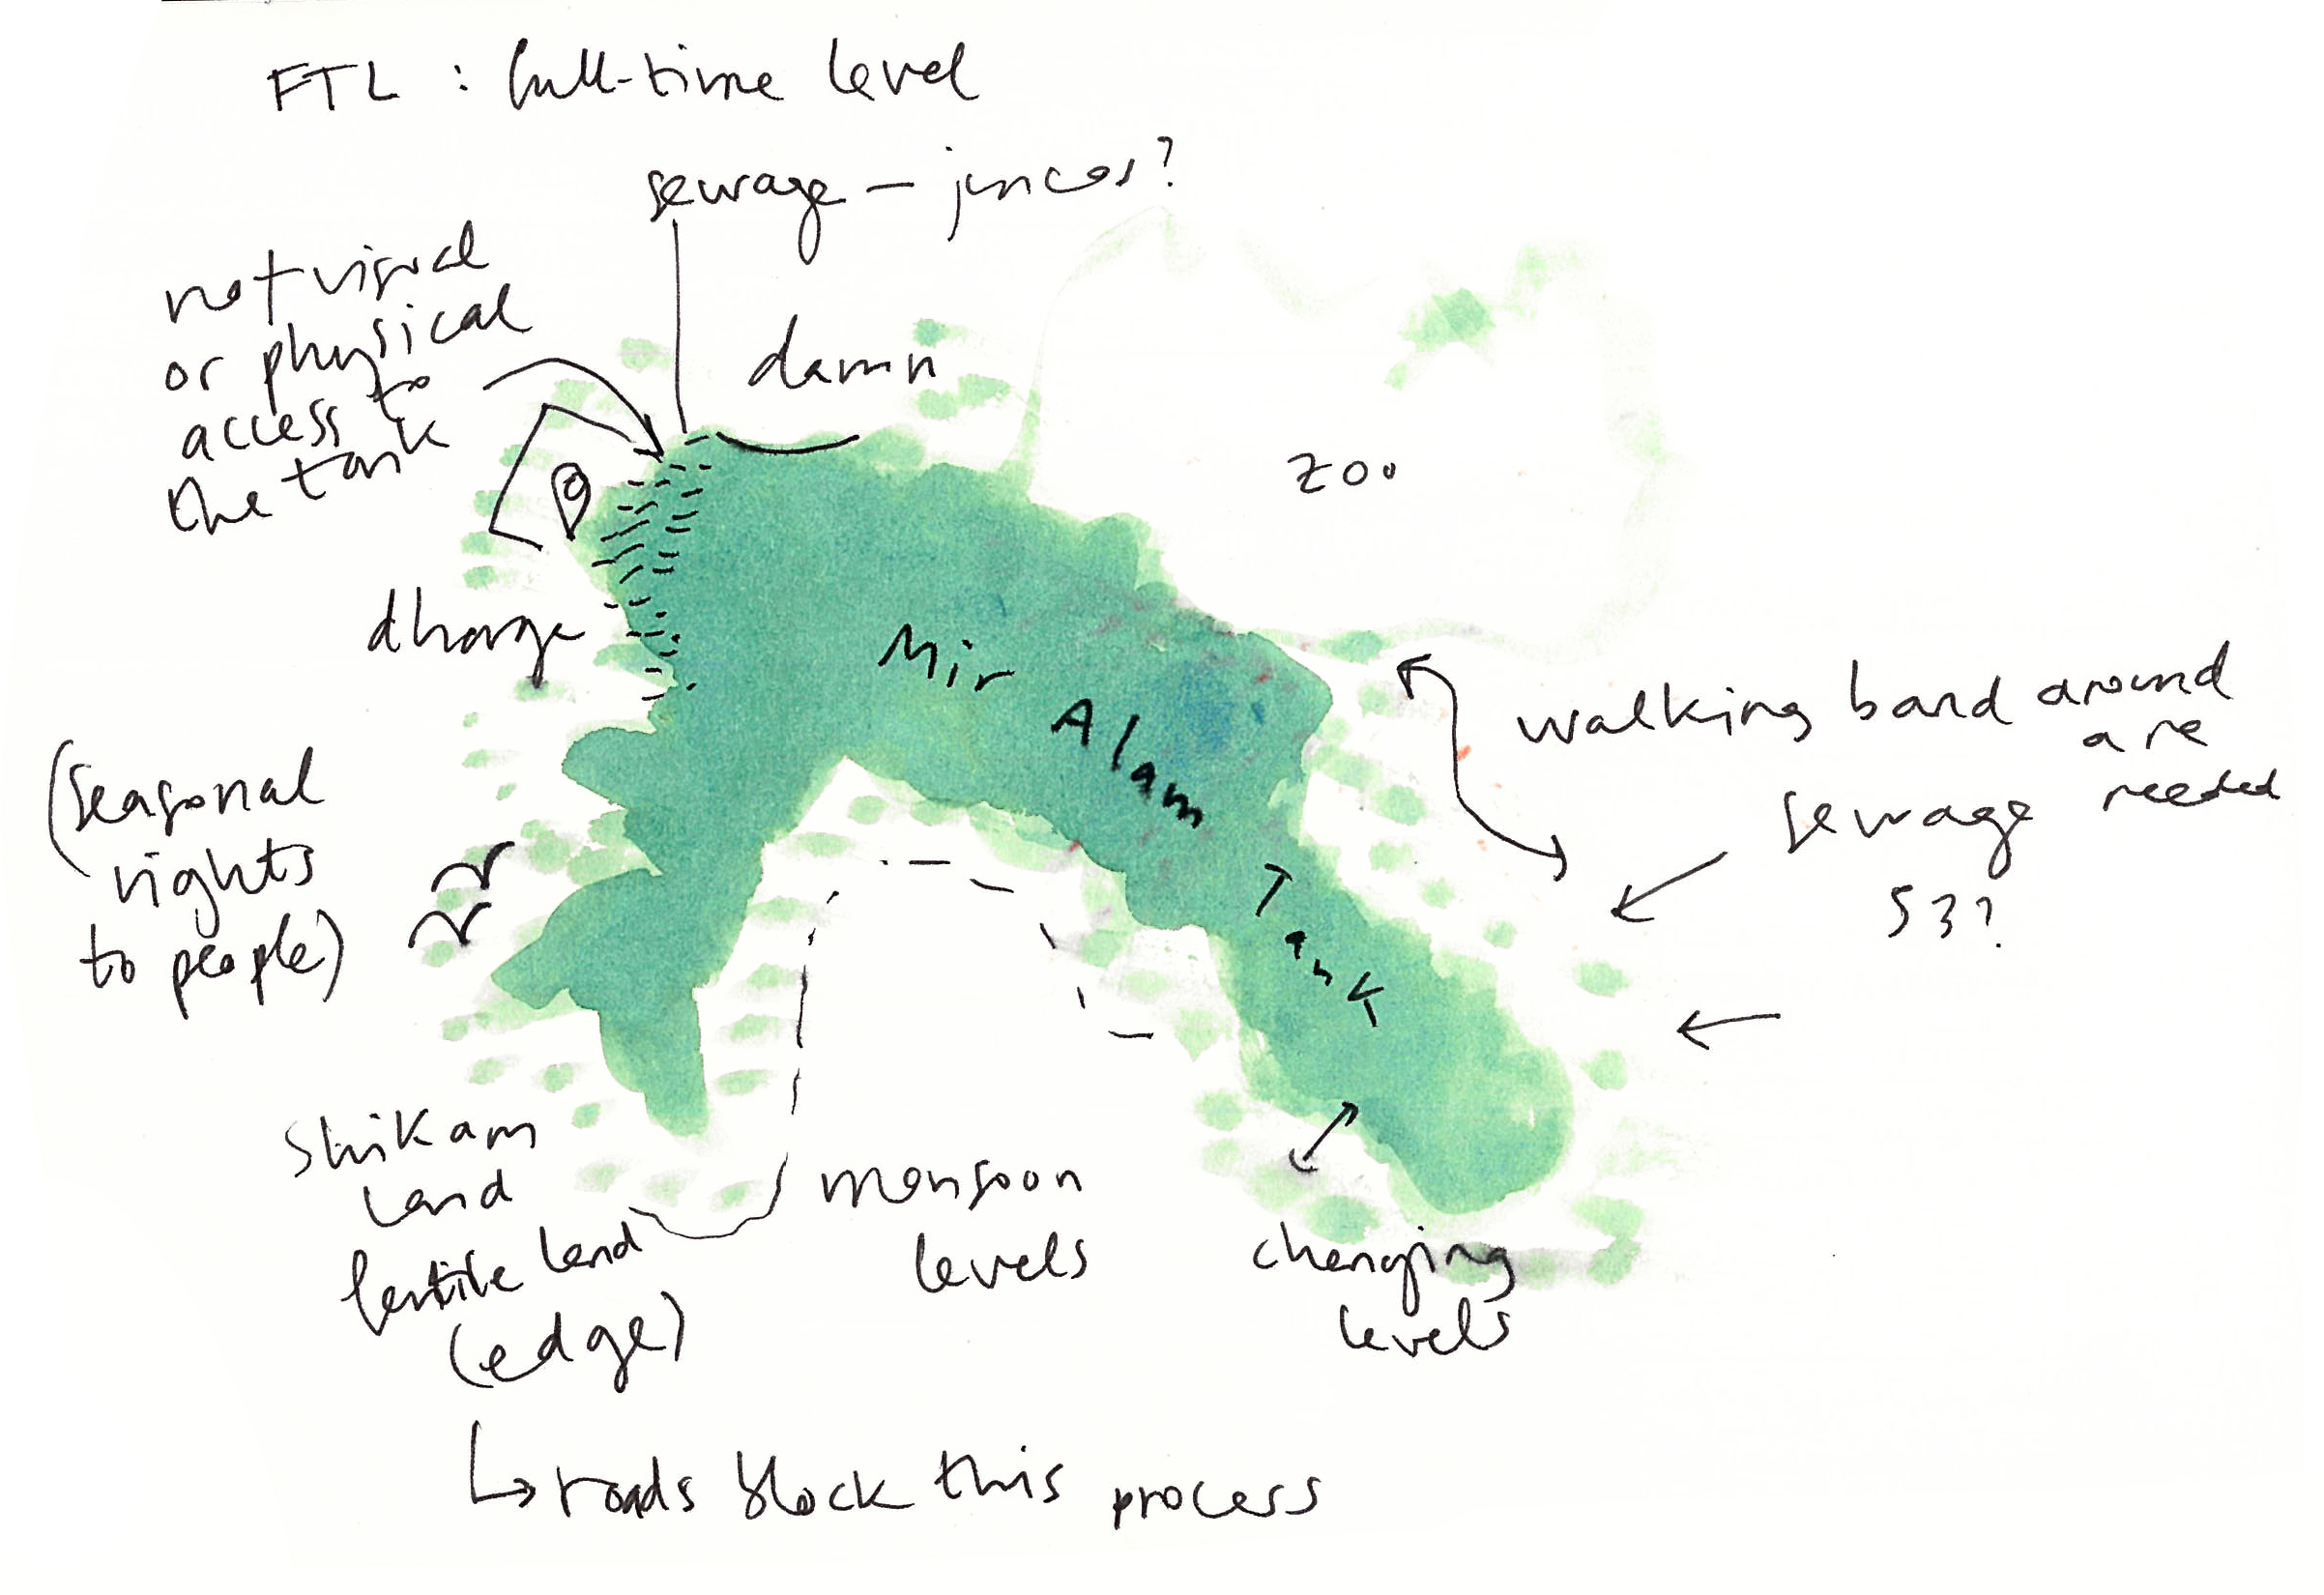 FTL : full-time level
sewage – juncos?
not visual
or physical
access to
the tank
damn
zoo
Mir Alam Tank
walking band around
are
needed
sewage
53?
(seasonal
rights
to people)
shikam
land
fertile land
(edge)
monsoon
levels
changing
levels
↳ roads block this process